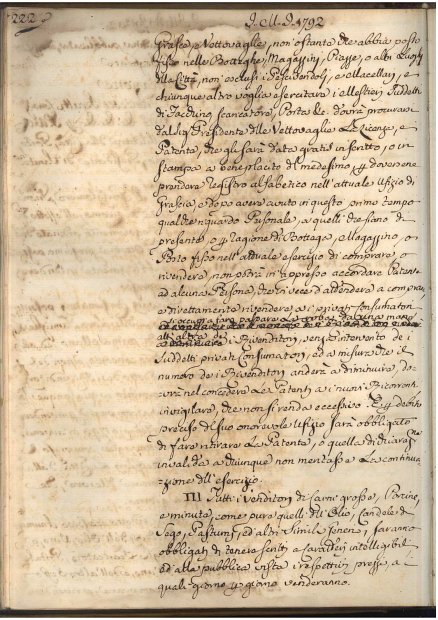 222
J. M. J. 1792
Grascia, e Vettovaglie, non ostante che abbia posto
fisso nelle Botteghe, Magazzini, Piazze, o altri Luoghi
della Città, non esclusi i Pescivendoli, e Macellari, e
chiunque altro voglia esercitare i Mestieri suddetti
di Facchino, Porta &c. dovrà procurarsi
dal Sig. Presidente delle Vettovaglie la Licenza, e
Patente, che gli sarà data gratis in scritto, o in
stampa a beneplacito del medesimo, e doverne
prendere registro alfabetico nell'attuale Ufizio di
Grascia e dopo avere avuto in questo primo tempo
qualche riguardo Personale, a quelli che siano di
presente o per Ragione di Bottega, e Magazzino, o
Posto fisso nell'attuale esercizio di comprare, o
rivendere, non potrà in appresso accordare Patente
ad alcuna Persona, che in vece d'attendere a comprare,
e direttamente rivendere a i privati Consumatori
passare la roba da una mano
all'altra de i Rivenditori, senza intervento de i
suddetti privati Consumatori, ed a misura che il
numero de i Rivenditori anderà a diminuire, do-
vrà nel concedere le Patenti a i nuovi Ricorrenti
invigilare, che non si renda eccessivo. E per debito
preciso del suo onorevole Ufizio sarà obbligato
di fare ritirare la Patente, o quella di dichiarar(ne)
invalida a chiunque non meritasse la continua-
zione dell'esercizio.
III Tutti i Venditori di Carni grosse, Porcine,
e minute, come pure quelli di Olio, Candele di
Sego, Pastumi, ed altri simili Generi, saranno
obbligati di tenere scritti a caratteri intelligibili
ed alla pubblica vista i respettivi prezzi, a
quali giorno per giorno venderanno.